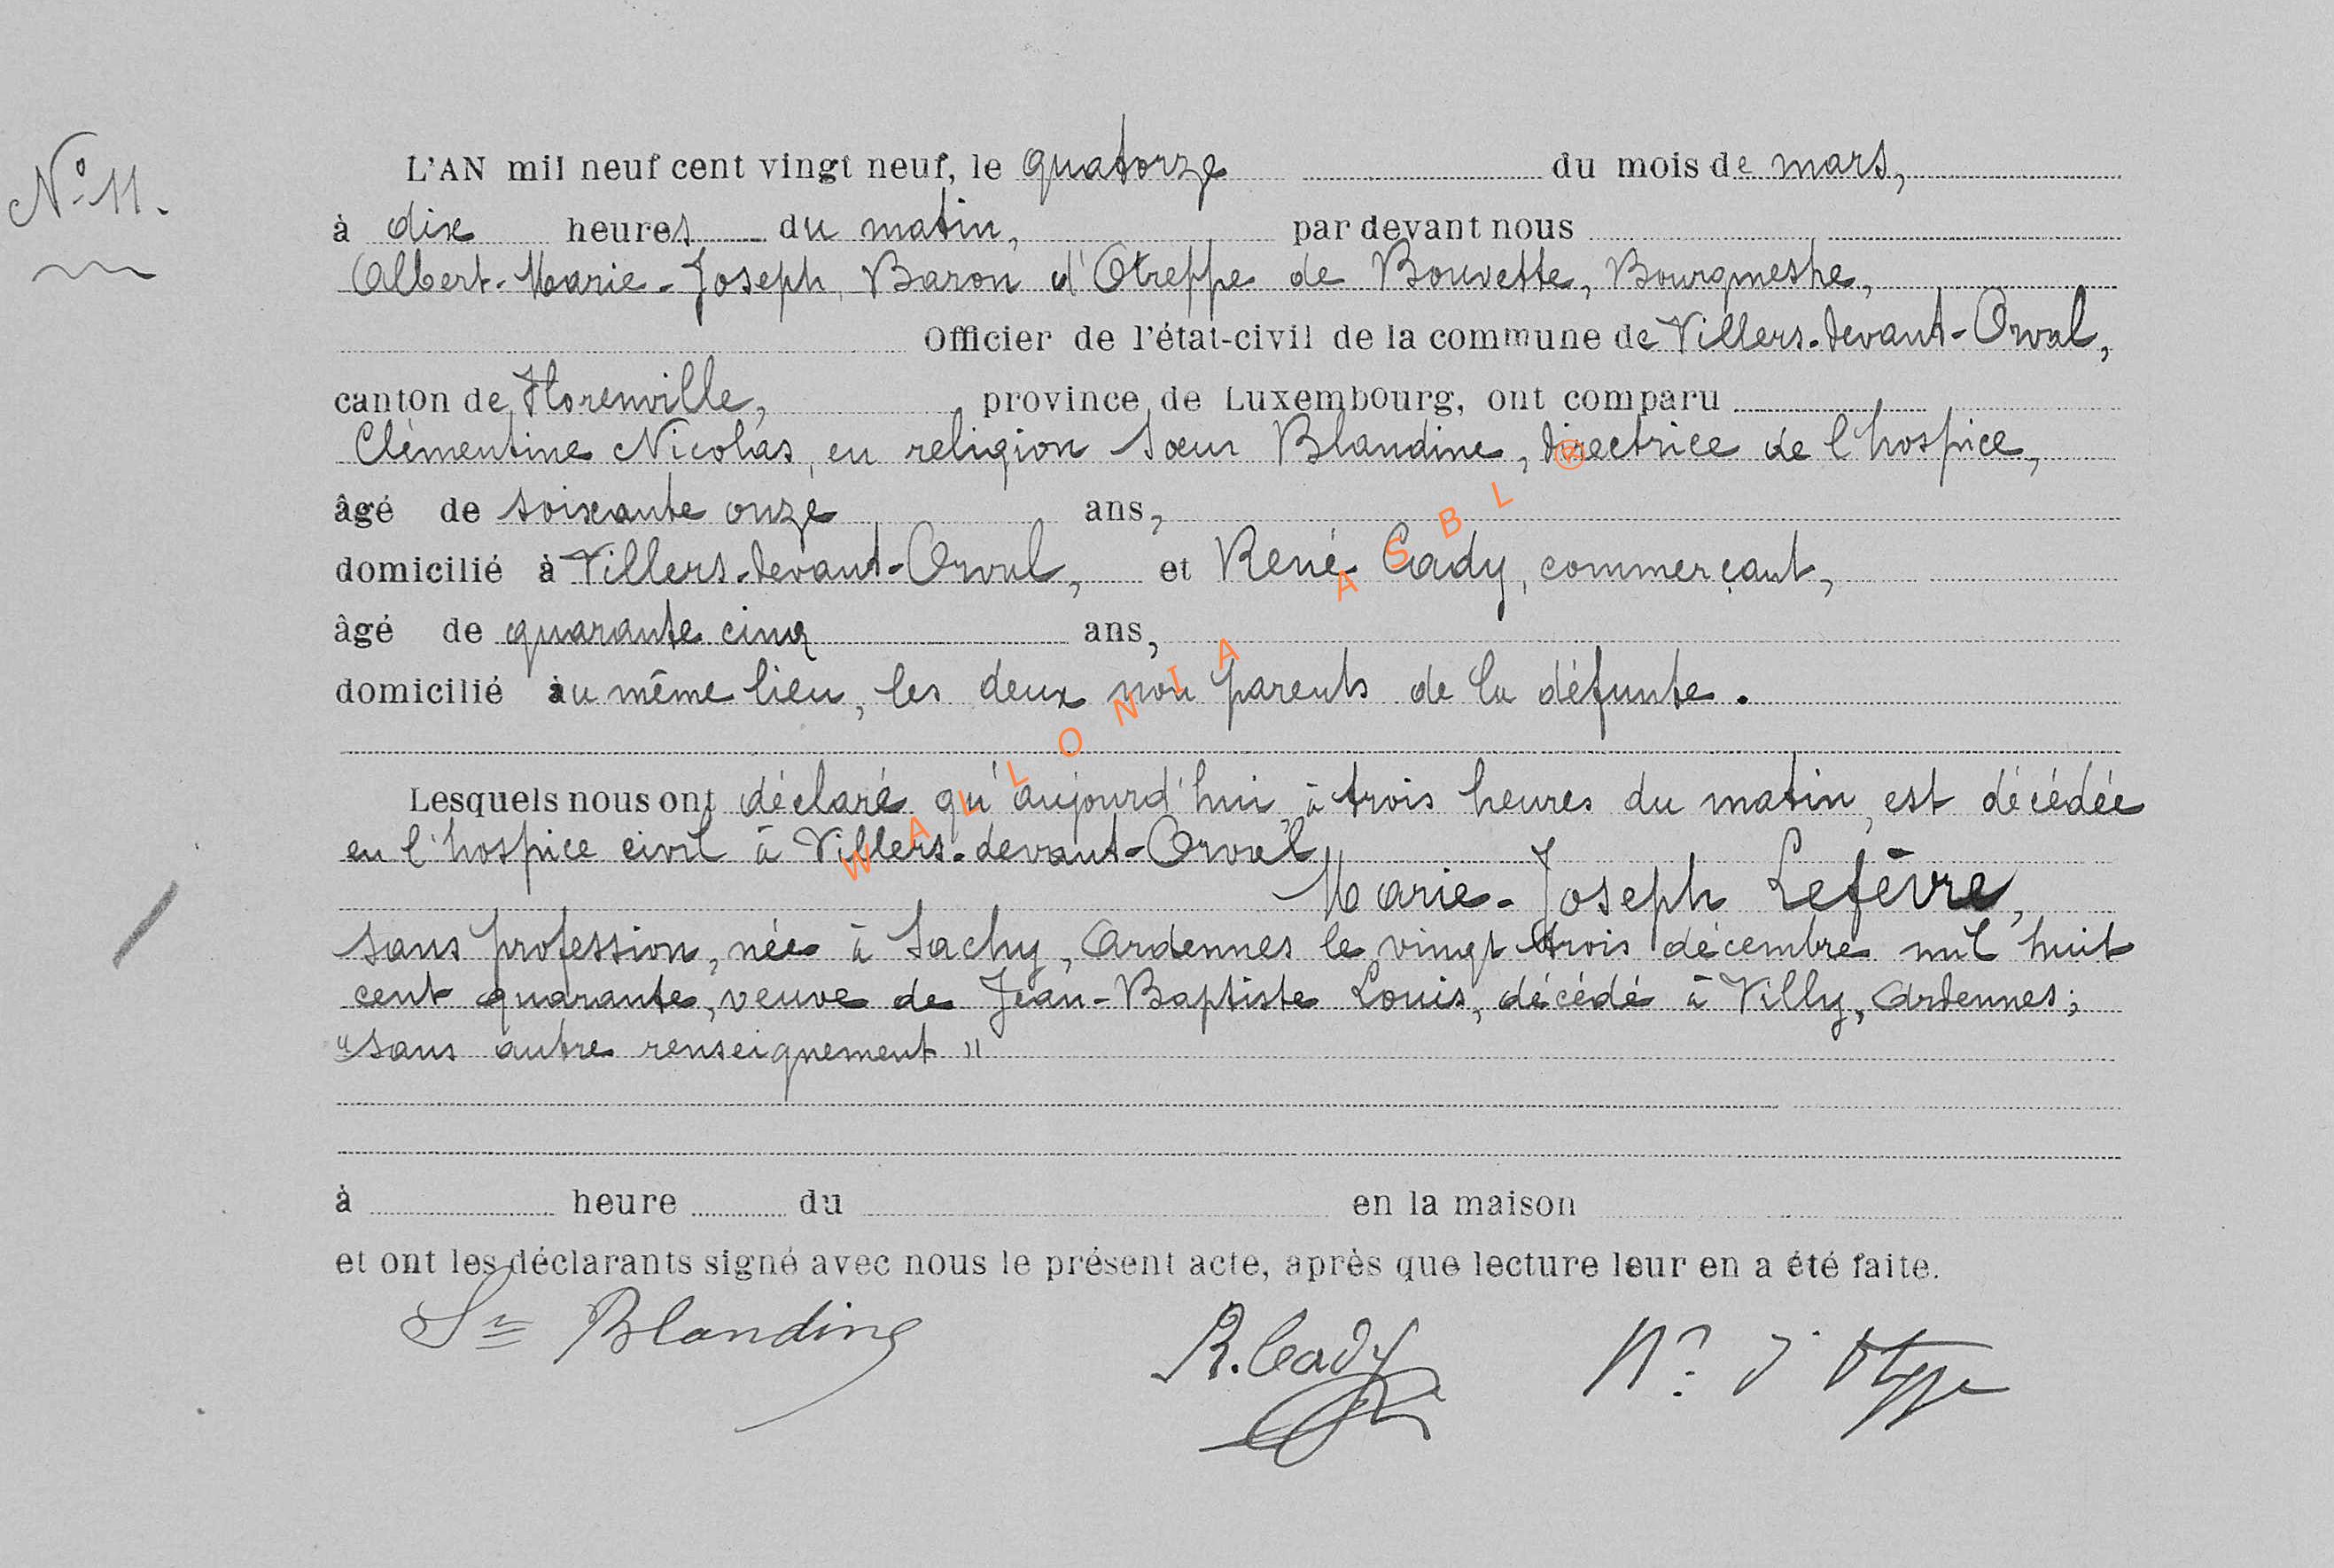 N° 11.
L'AN mil neuf cent vingt neuf, le quatorze du mois de mars,
à dix heures du matin, par devant nous
Albert-Marie-Joseph, Baron d'Otreppe de Bouvette, Bourgmestre,
Officier de l'état-civil de la commune de Villers-devant-Orval,
canton de Florenville, province de Luxembourg, ont comparu
Clémentine Nicolas, en religion Sœur Blandine, directrice de l'hospice,
âgé de soixante onze ans,
domicilié à Villers-devant-Orval, et René Cady, commerçant,
âgé de quarante cinq ans,
domicilié au même lieu, les deux non parents de la défunte.
Lesquels nous ont déclaré qu'aujourd'hui, à trois heures du matin, est décédée
en l'hospice civil à Villers-devant-Orval
Marie-Joseph Lefèvre,
sans profession, née à Sachy, Ardennes le vingt trois décembre mil huit
cent quarante, veuve de Jean-Baptiste Louis, décédé à Villy, Ardennes;
"sans autre renseignement"
à heure du en la maison
et ont les déclarants signé avec nous le présent acte, après que lecture leur en a été faite.
Sr Blandine R. Cady Bn d'Otreppe
WALLONIA ASBL ®